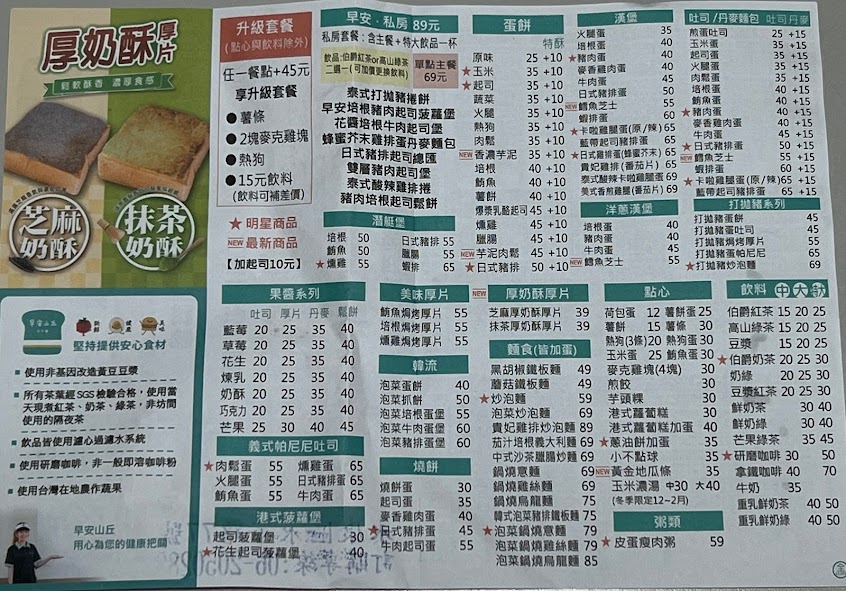 厚奶酥厚片
鬆軟酥香 濃厚食感
芝麻奶酥
抹茶奶酥
早安山丘
堅持提供安心食材
使用非基因改造黃豆豆漿
所有茶葉經SGS檢驗合格，使用當
天現煮紅茶、奶茶、綠茶，非坊間
使用的隔夜茶
飲品皆使用濾心過濾水系統
使用研磨咖啡，非一般即溶咖啡粉
使用台灣在地農作蔬果
早安山丘
用心為您的健康把關
升級套餐
(點心與飲料除外)
任一餐點+45元
享升級套餐
●薯條
●2塊麥克雞塊
●熱狗
●15元飲料
(飲料可補差價)
★明星商品
NEW 最新商品
【加起司10元】
早安．私房 89元
私房套餐：含主餐+特大飲品一杯
飲品：伯爵紅茶or高山綠茶
二選一(可加價更換飲料)
單點主餐
69元
泰式打拋豬捲餅
早安培根豬肉起司菠蘿堡
花醬培根牛肉起司堡
蜂蜜芥末雞排蛋丹麥麵包
日式豬排起司總匯
雙層豬肉起司堡
泰式酸辣雞排捲
豬肉培根起司鬆餅
潛艇堡
培根 50 日式豬排 55
熱狗 50 臘腸 55
★燻雞 55 蝦排 65
蛋餅
特酥
原味 25 +10
★玉米 35 +10
★起司 35 +10
蔬菜 35 +10
火腿 35 +10
熱狗 35 +10
肉鬆 35 +10
NEW 香濃芋泥 35 +10
培根 40 +10
鮪魚 40 +10
薯餅 40 +10
爆漿乳酪起司 45 +10
燻雞 45 +10
臘腸 45 +10
NEW 芋泥肉鬆 45 +10
★日式豬排 50 +10
漢堡
火腿蛋 35
培根蛋 40
★豬肉蛋 40
麥香雞肉蛋 40
牛肉蛋 45
日式豬排蛋 50
NEW 鱈魚芝士 55
蝦排蛋 60
★卡啦雞腿蛋(原/辣) 65
藍帶起司豬排蛋 65
★日式雞排蛋(蜂蜜芥末) 65
貴妃雞排(番茄片) 65
泰式酸辣卡啦雞腿蛋 69
美式香煎雞腿(番茄片) 69
洋蔥漢堡
培根蛋 40
豬肉蛋 40
牛肉蛋 45
NEW 鱈魚芝士 55
吐司/丹麥麵包 吐司 丹麥
煎蛋吐司 25 +15
玉米蛋 35 +15
起司蛋 35 +15
火腿蛋 35 +15
肉鬆蛋 35 +15
培根蛋 40 +15
鮪魚蛋 40 +15
★豬肉蛋 40 +15
麥香雞肉蛋 40 +15
牛肉蛋 45 +15
★日式豬排蛋 50 +15
NEW 鱈魚芝士 55 +15
蝦排蛋 60 +15
★卡啦雞腿蛋(原/辣) 65 +15
藍帶起司豬排蛋 65 +15
打拋豬系列
打拋豬蛋餅 45
打拋豬蛋吐司 45
打拋豬焗烤厚片 55
打拋豬蛋帕尼尼 65
★打拋豬炒泡麵 69
果醬系列
吐司 厚片 丹麥 鬆餅
藍莓 20 25 35 40
草莓 20 25 35 40
花生 20 25 35 40
煉乳 20 25 35 40
奶酥 20 25 35 40
巧克力 20 25 35 40
芒果 25 30 40 45
義式帕尼尼吐司
★肉鬆蛋 55 燻雞蛋 65
火腿蛋 55 日式豬排蛋 65
鮪魚蛋 55 牛肉蛋 65
港式菠蘿堡
起司菠蘿蛋 30
★花生起司菠蘿蛋 40
美味厚片
鮪魚焗烤厚片 55
培根焗烤厚片 55
燻雞焗烤厚片 55
韓流
泡菜蛋餅 40
泡菜抓餅 50
泡菜培根蛋堡 55
泡菜牛肉蛋堡 60
泡菜豬排蛋堡 60
燒餅
燒餅蛋 30
起司蛋 35
麥香雞肉蛋 40
★日式豬排蛋 50
牛肉起司蛋 55
NEW 厚奶酥厚片
芝麻厚奶酥厚片 39
抹茶厚奶酥厚片 39
麵食(皆加蛋)
黑胡椒鐵板麵 49
蘑菇鐵板麵 49
★炒泡麵 59
泡菜炒泡麵 69
貴妃雞排炒泡麵 89
茄汁培根義大利麵 69
中式沙茶臘腸炒麵 69
鍋燒意麵 69
鍋燒雞絲麵 69
鍋燒烏龍麵 75
韓式泡菜豬排鐵板麵 75
★泡菜鍋燒意麵 79
泡菜鍋燒雞絲麵 79
泡菜鍋燒烏龍麵 85
點心
荷包蛋 12 薯餅蛋 25
薯餅 15 薯條 30
熱狗(3條) 20 熱狗蛋 30
玉米蛋 25 鮪魚蛋 30
麥克雞塊(4塊) 30
煎餃 30
芋頭粿 30
港式蘿蔔糕 30
港式蘿蔔糕加蛋 40
★蔥油餅加蛋 35
小不點球 35
NEW 黃金地瓜條 35
玉米濃湯 中30 大40
(冬季限定12~2月)
粥類
★皮蛋瘦肉粥 59
飲料 中 大 特
伯爵紅茶 15 20 25
高山綠茶 15 20 25
豆漿 15 20 25
★伯爵奶茶 20 25 30
奶綠 20 25 30
豆漿紅茶 20 25 30
鮮奶茶 30 40
鮮奶綠 30 40
芒果綠茶 35 45
★研磨咖啡 30 50
拿鐵咖啡 40 70
牛奶 35
重乳鮮奶茶 40 50
重乳鮮奶綠 40 50